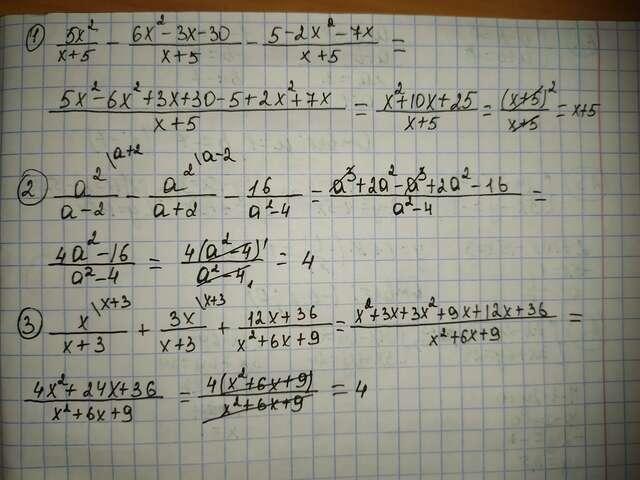 ① 5x²/(x+5) − (6x²−3x−30)/(x+5) − (5−2x²−7x)/(x+5) =
(5x²−6x²+3x+30−5+2x²+7x)/(x+5) = (x²+10x+25)/(x+5) = (x+5)²/(x+5) = x+5
② a²\a+2/(a−2) − a²\a−2/(a+2) − 16/(a²−4) = (a³+2a²−a³+2a²−16)/(a²−4) =
(4a²−16)/(a²−4) = 4(a²−4)¹/(a²−4)₁ = 4
③ x\x+3/(x+3) + 3x\x+3/(x+3) + (12x+36)/(x²+6x+9) = (x²+3x+3x²+9x+12x+36)/(x²+6x+9) =
(4x²+24x+36)/(x²+6x+9) = 4(x²+6x+9)/(x²+6x+9) = 4